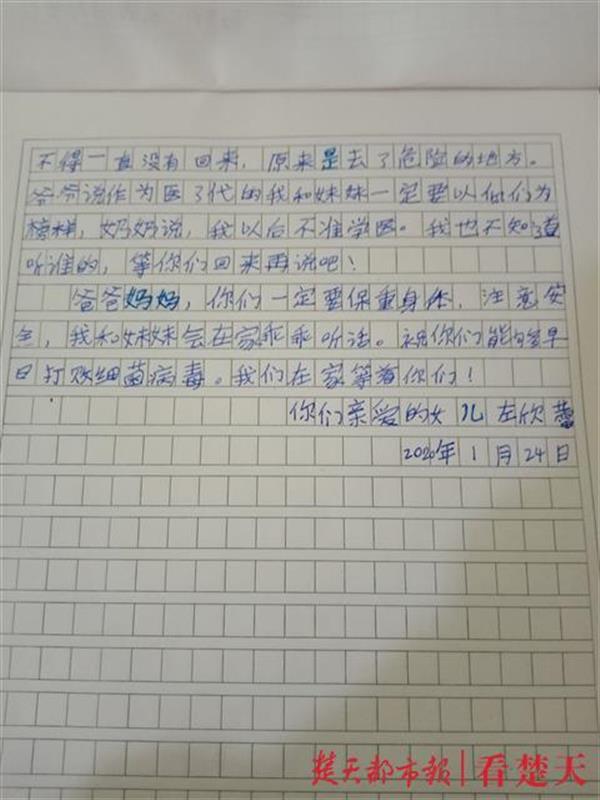 不得一直没有回来，原来是去了危险的地方。
爷爷说作为医3代的我和妹妹一定要以你们为
榜样，奶奶说，我以后不准学医。我也不知道
听谁的，等你们回来再说吧！
爸爸妈妈，你们一定要保重身体，注意安
全，我和妹妹会在家乖乖听话。祝你们能够早
日打败细菌病毒。我们在家等着你们！
你们亲爱的女儿左欣蓉
2020年1月24日
楚天都市报|看楚天